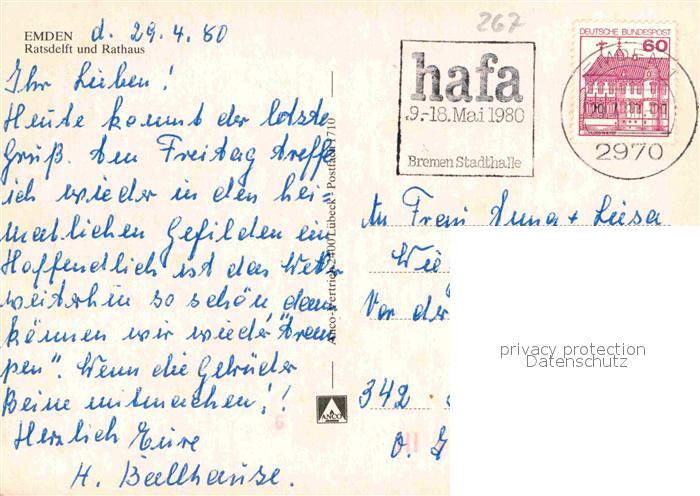 EMDEN d. 29.4.80
Ratsdelft und Rathaus
Ihr Lieben!
Heute kommt der letzte
Gruß. Am Freitag treffe
ich wieder in den hei=
matlichen Gefilden ein
Hoffendlich ist das Wetter
weiterhin so schön, dann
können wir wieder "tram
pen". Wenn die Gebrüder
Beine mitmachen!!
Herzlich Eure
H. Ballhause.
267
hafa
9.-18. Mai 1980
Bremen Stadthalle
DEUTSCHE BUNDESPOST
60
2970
Anco-Vertrieb 2400 Lübeck · Postfach 1710
ANCO
An Frau Anna + Luisa
Wie
Vor der
342
o. G
privacy protection
Datenschutz